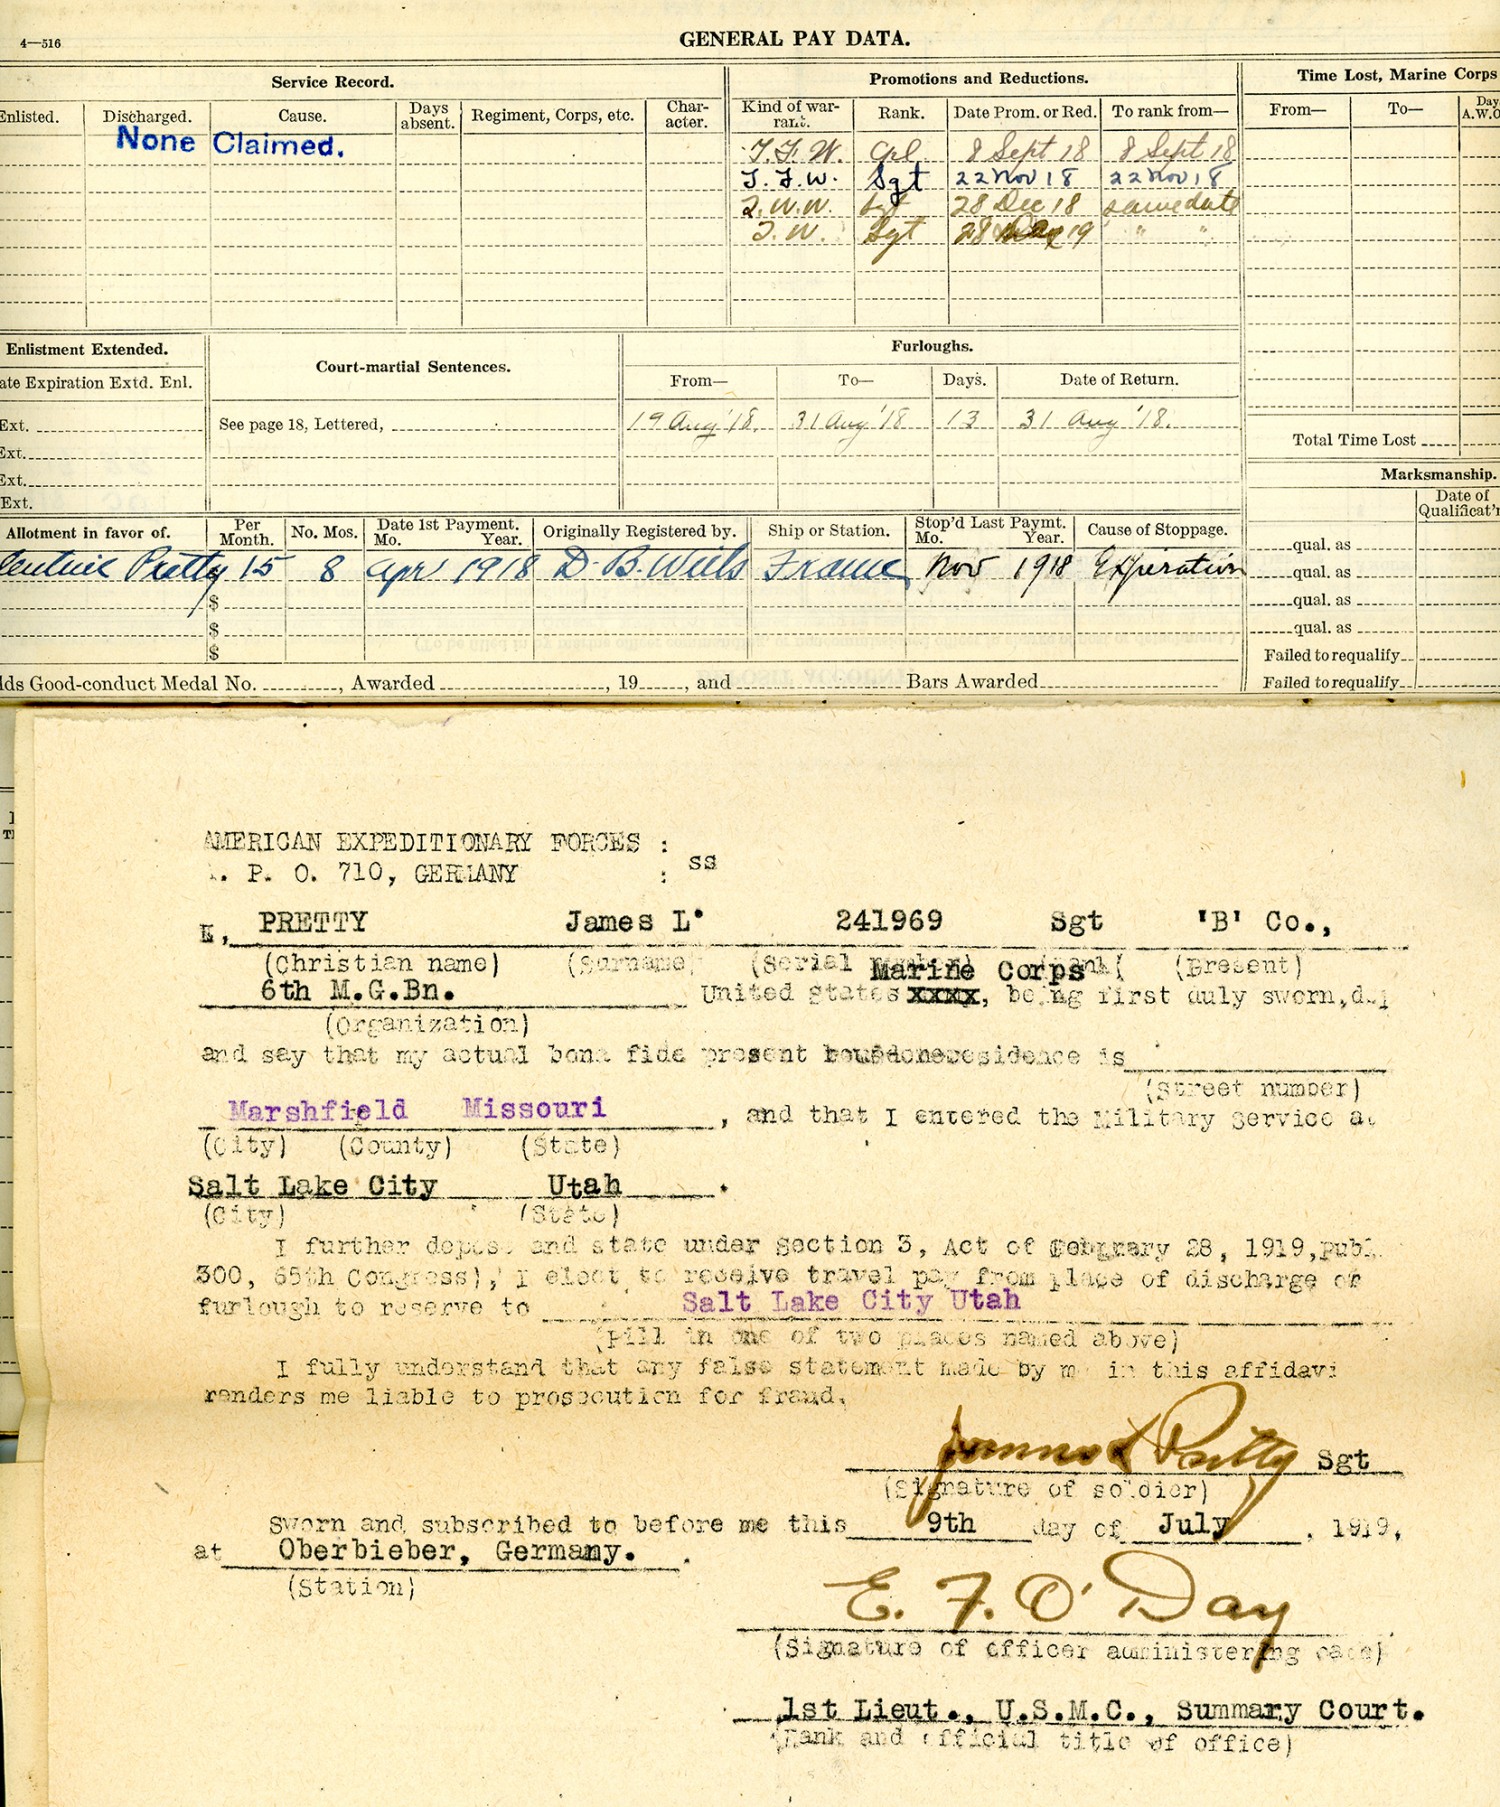 4—516
GENERAL PAY DATA.
Service Record.
Promotions and Reductions.
Time Lost, Marine Corps
Enlisted. Discharged. Cause. Days absent. Regiment, Corps, etc. Character.
Kind of warrant. Rank. Date Prom. or Red. To rank from—
From— To— Day A.W.O
None Claimed.
T. F. W. Cpl 8 Sept 18 8 Sept 18
T. F. W. Sgt 22 Nov 18 22 Nov 18
T. W. W. Sgt 28 Dec 18 same date
T. W. Sgt 28 19 " "
Enlistment Extended.
Court-martial Sentences.
Furloughs.
ate Expiration Extd. Enl.
From— To— Days. Date of Return.
Ext.
See page 18, Lettered,
19 Aug '18. 31 Aug '18 13 31 Aug '18.
Total Time Lost
Ext.
Ext.
Ext.
Marksmanship.
Date of Qualificat'n
Allotment in favor of. Per Month. No. Mos. Date 1st Payment. Mo. Year. Originally Registered by. Ship or Station. Stop'd Last Paymt. Mo. Year. Cause of Stoppage.
Pretty 15 8 Apr 1918 D. B. Wills France Nov 1918 Expiration
qual. as
qual. as
$
qual. as
$
qual. as
$
Failed to requalify
lds Good-conduct Medal No. , Awarded , 19 , and Bars Awarded
Failed to requalify
AMERICAN EXPEDITIONARY FORCES :
. P. O. 710, GERMANY : SS
I, PRETTY James L. 241969 Sgt 'B' Co.,
(Christian name) (Surname) (Serial number) (Rank( (Present)
Marine Corps
6th M.G.Bn. United States xxxx, being first duly sworn, de
(Organization)
and say that my actual bona fide present residence is
(Street number)
Marshfield Missouri , and that I entered the Military Service at
(City) (County) (State)
Salt Lake City Utah .
(City) (State)
I further depose and state under Section 3, Act of February 28, 1919, Publ
300, 65th Congress), I elect to receive travel pay from place of discharge or
furlough to reserve to Salt Lake City Utah
(Fill in one of two places named above)
I fully understand that any false statement made by me in this affidavi
renders me liable to prosecution for fraud.
James L Pretty Sgt
(Signature of soldier)
Sworn and subscribed to before me this 9th day of July , 1919,
at Oberbieber, Germany. .
(Station)
E. F. O'Day
(Signature of officer administering oath)
1st Lieut., U.S.M.C., Summary Court.
(Rank and official title of office)